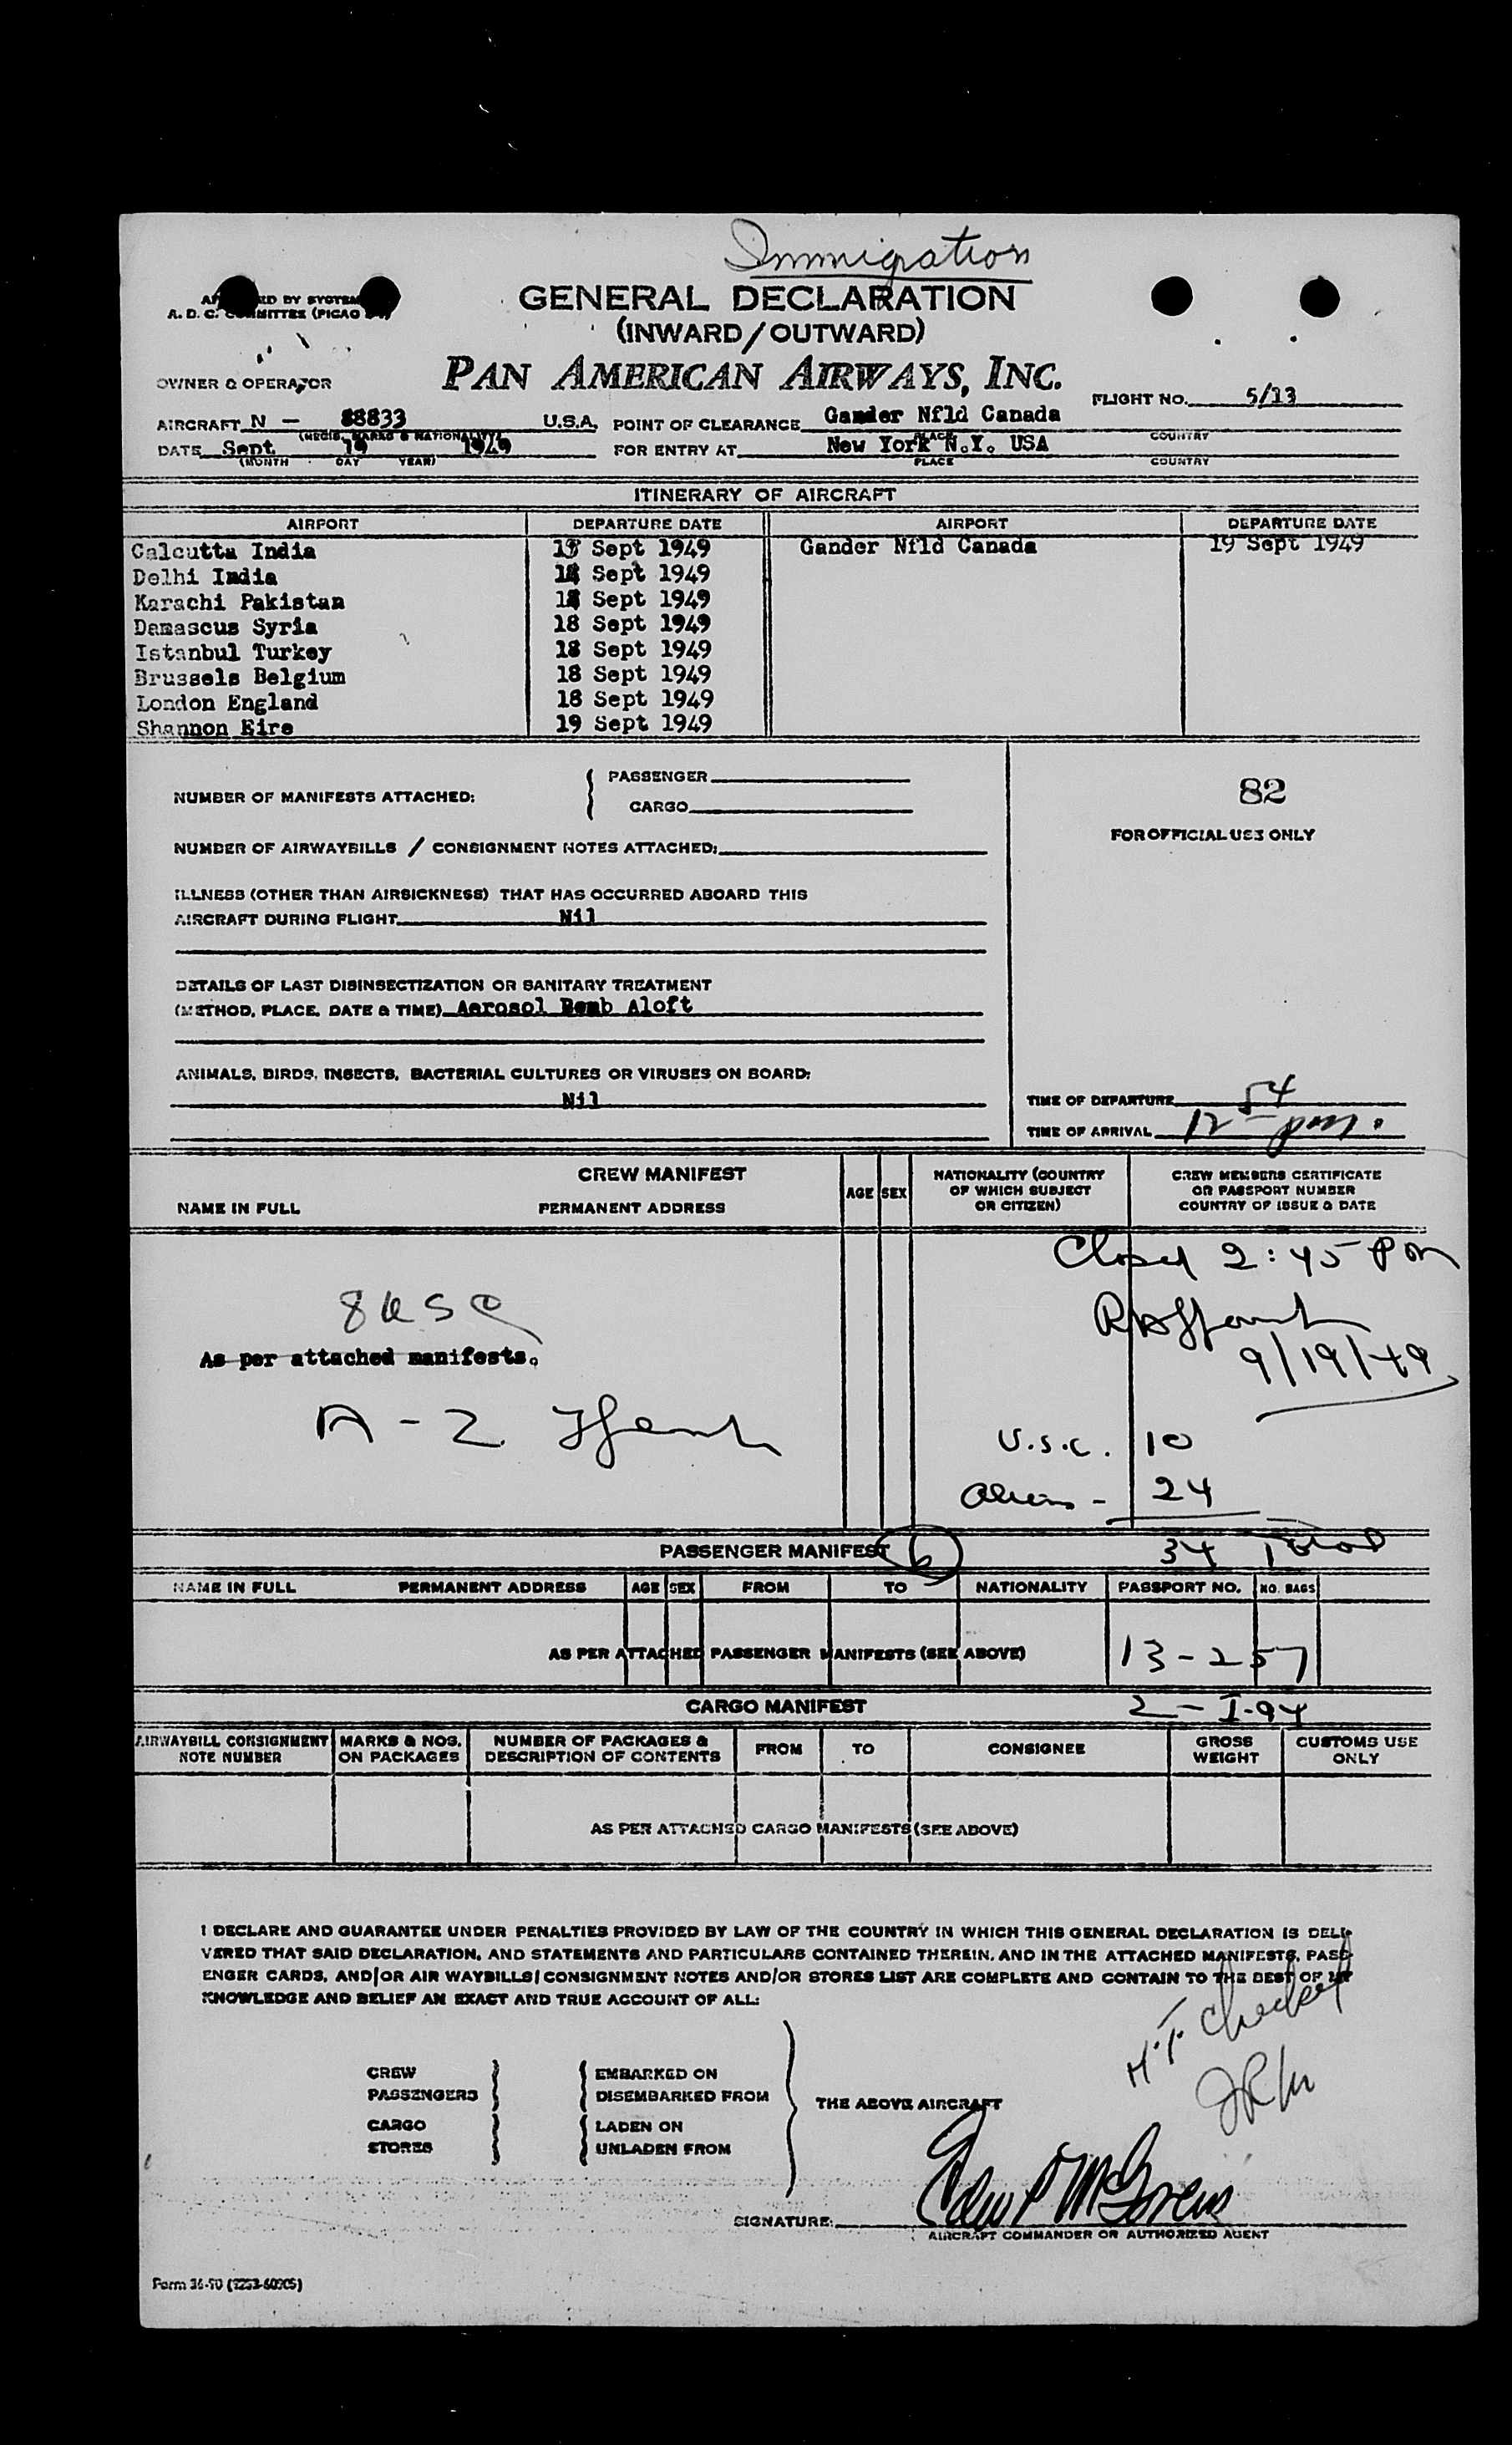 Immigration
GENERAL DECLARATION
(INWARD/OUTWARD)
A. D. C. COMMITTEE (PICAO
OWNER & OPERATOR
PAN AMERICAN AIRWAYS, INC.
FLIGHT NO. 5/13
AIRCRAFT N - 88833 U.S.A. POINT OF CLEARANCE Gander Nfld Canada
(REGIS. MARKS & NATIONALITY) PLACE COUNTRY
DATE Sept 19 1949 FOR ENTRY AT New York N.Y. USA
(MONTH DAY YEAR) PLACE COUNTRY
ITINERARY OF AIRCRAFT
AIRPORT DEPARTURE DATE AIRPORT DEPARTURE DATE
Calcutta India Sept 1949 Gander Nfld Canada 19 Sept 1949
Delhi India Sept 1949
Karachi Pakistan Sept 1949
Damascus Syria 18 Sept 1949
Istanbul Turkey 18 Sept 1949
Brussels Belgium 18 Sept 1949
London England 18 Sept 1949
Shannon Eire 19 Sept 1949
NUMBER OF MANIFESTS ATTACHED: PASSENGER
CARGO
82
NUMBER OF AIRWAYBILLS / CONSIGNMENT NOTES ATTACHED:
FOR OFFICIAL USE ONLY
ILLNESS (OTHER THAN AIRSICKNESS) THAT HAS OCCURRED ABOARD THIS
AIRCRAFT DURING FLIGHT Nil
DETAILS OF LAST DISINSECTIZATION OR SANITARY TREATMENT
(METHOD, PLACE, DATE & TIME) Aerosol Bomb Aloft
ANIMALS, BIRDS, INSECTS, BACTERIAL CULTURES OR VIRUSES ON BOARD:
Nil
TIME OF DEPARTURE
TIME OF ARRIVAL 12 54 pm.
CREW MANIFEST
NAME IN FULL PERMANENT ADDRESS AGE SEX NATIONALITY (COUNTRY OF WHICH SUBJECT OR CITIZEN) CREW MEMBERS CERTIFICATE OR PASSPORT NUMBER COUNTRY OF ISSUE & DATE
Closed 2:45 PM
8 USC
As per attached manifests.
9/19/49
A - 2
U.S.C. 10
Aliens - 24
34 Total
PASSENGER MANIFEST 6
NAME IN FULL PERMANENT ADDRESS AGE SEX FROM TO NATIONALITY PASSPORT NO. NO. BAGS
AS PER ATTACHED PASSENGER MANIFESTS (SEE ABOVE)
13-257
CARGO MANIFEST
2 - I-94
AIRWAYBILL CONSIGNMENT NOTE NUMBER MARKS & NOS. ON PACKAGES NUMBER OF PACKAGES & DESCRIPTION OF CONTENTS FROM TO CONSIGNEE GROSS WEIGHT CUSTOMS USE ONLY
AS PER ATTACHED CARGO MANIFESTS (SEE ABOVE)
I DECLARE AND GUARANTEE UNDER PENALTIES PROVIDED BY LAW OF THE COUNTRY IN WHICH THIS GENERAL DECLARATION IS DELI-
VERED THAT SAID DECLARATION, AND STATEMENTS AND PARTICULARS CONTAINED THEREIN, AND IN THE ATTACHED MANIFESTS, PASS-
ENGER CARDS, AND/OR AIR WAYBILLS/CONSIGNMENT NOTES AND/OR STORES LIST ARE COMPLETE AND CONTAIN TO THE BEST OF MY
KNOWLEDGE AND BELIEF AN EXACT AND TRUE ACCOUNT OF ALL:
H.T. checked
CREW EMBARKED ON
PASSENGERS DISEMBARKED FROM
THE ABOVE AIRCRAFT
CARGO LADEN ON
STORES UNLADEN FROM
SIGNATURE:
AIRCRAFT COMMANDER OR AUTHORIZED AGENT